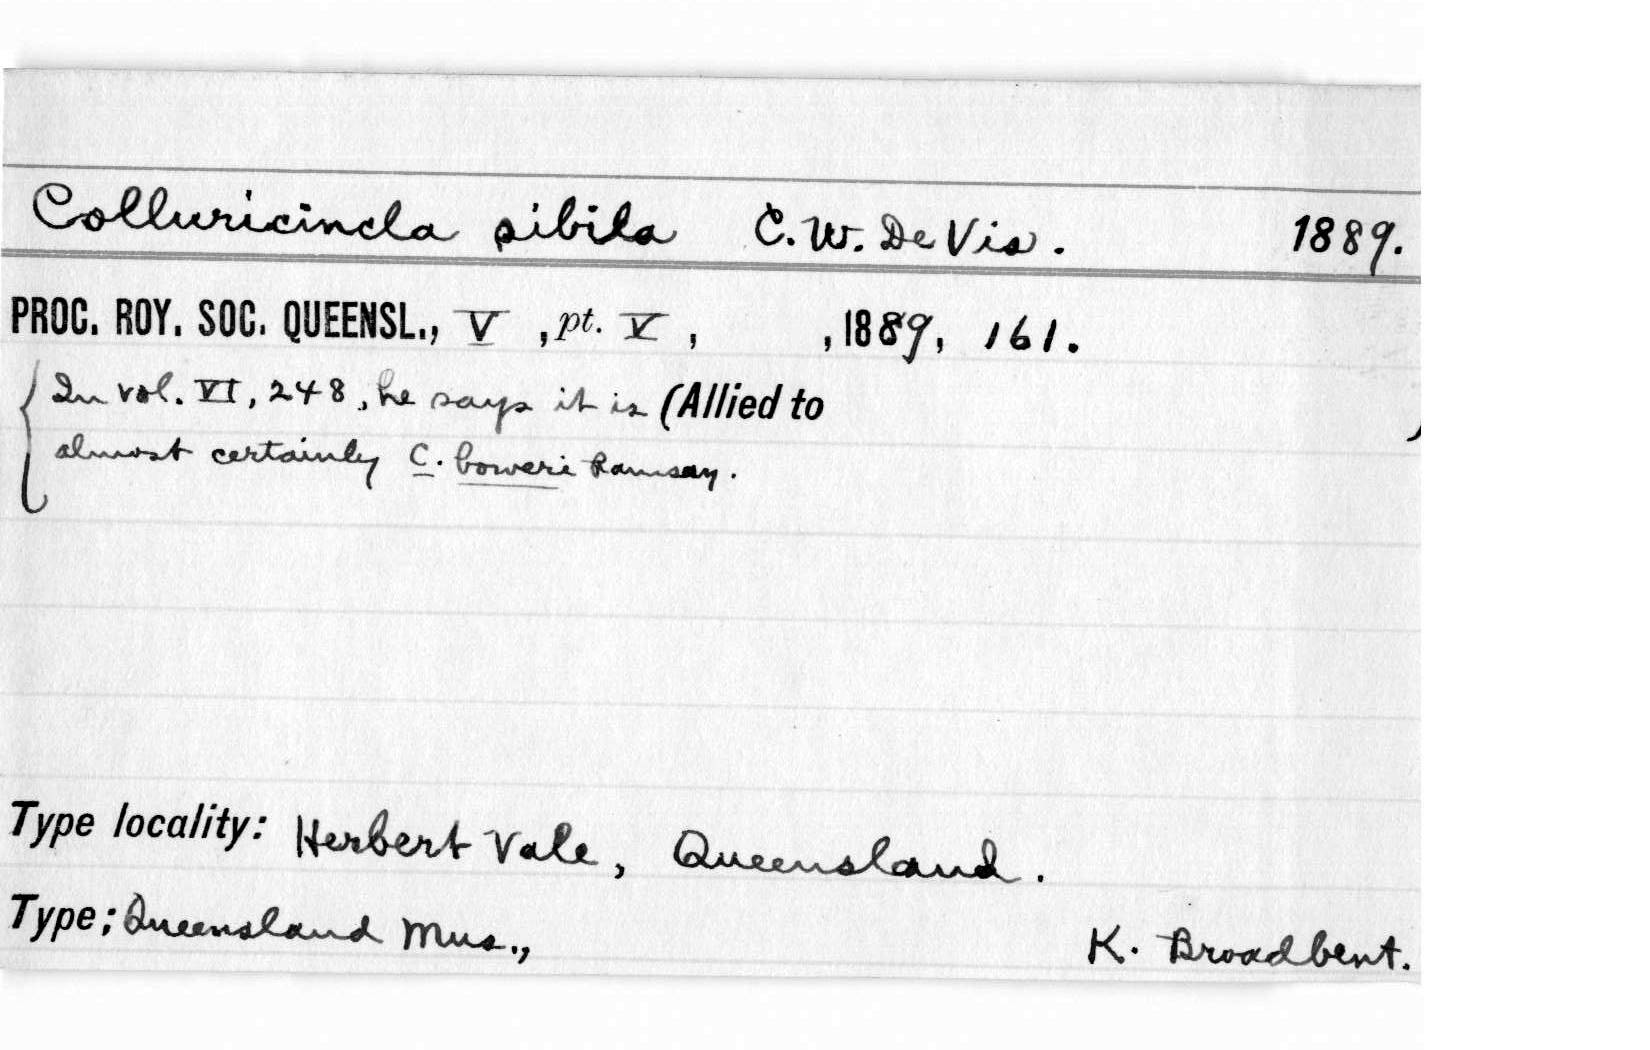 Colluricincla sibila C. W. De Vis. 1889.
PROC. ROY. SOC. QUEENSL., V, pt. V, , 1889, 161.
In vol. VI, 248, he says it is (Allied to )
almost certainly C. boweri Ramsay.
Type locality: Herbert Vale, Queensland.
Type; Queensland Mus., K. Broadbent.